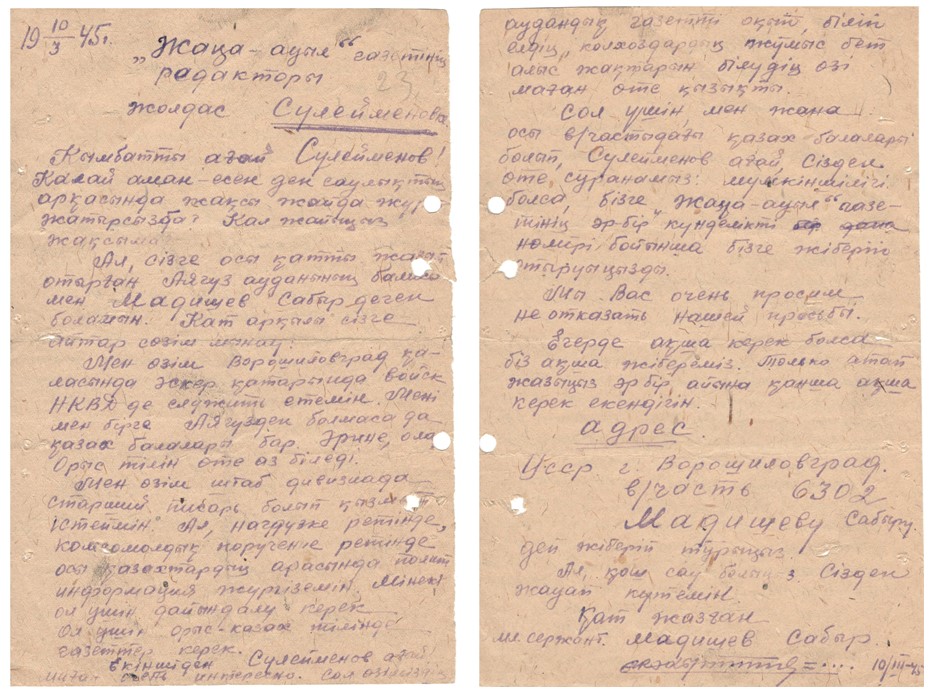 19 10/3 45г.
„Жаңа-ауыл“ газетінің
радакторы
23
жолдас Сулейменова.
Кымбатты ағай Сулейменов!
Калай аман-есен ден саулықтың
арқасында жақсы жайда жүр
жатырсызба? Кал жайыңыз
жақсыма
Ал, сізге осы қатты жазып
отырған Аягуз ауданының баласы
мен Мадишев Сабыр деген
боламын. Кат арқылы сізге
айтар сөзім мынау:
Мен өзім Ворошиловград қа-
ласында әскер қатарында войск
НКВД де служить етемін. Мені
мен бірге Аягузден болмаса да
қазах балалары бар. Әрине, олар
Орыс тілін өте аз біледі.
Мен өзім штаб дивизиада
старший писарь болып қызмет
істеймін. Ал, нагрузке ретінде,
комсомолдық поручение ретінде
осы қазахтардың арасында полит
информация жүргіземін. Мінекі
ол үшін дайындалу керек
Ол үшін орыс-казах тілінде
газеттер керек.
Екіншіден Сулейменов ағай!
маған есть интересно. Сол өзіміздің
аудандық газетті оқып, біліп
елдің, колхоздардың жұмыс бет
алыс жақтарын білудің өзі
маған өте қызықты.
Сол үшін, мен жана
осы в/частьдағы қазах балалары
болып, Сулейменов ағай, сізден
өте сұранамыз: мүмкіншілігі
болса, бізге „Жаңа-ауыл“ газе-
тінің әр-бір күнделікті бір дана
номірі бойынша бізге жіберіп
отыруыңызды.
Мы Вас очень просим
не отказать нашей просьбы.
Егерде ақша керек болса
біз ақша жібереміз. Только атап
жазыңыз әр бір айына қанша ақша
керек екендігін.
адрес.
Усср г. Ворошиловград.
в/часть 6302
Мадишеву Сабыру
деп жіберіп тұрыңыс.
Ал, қош сау болыңыз Сізден
жауап күтемін.
Қат жазған
мл сержант. Мадишев Сабыр.
10/III-45